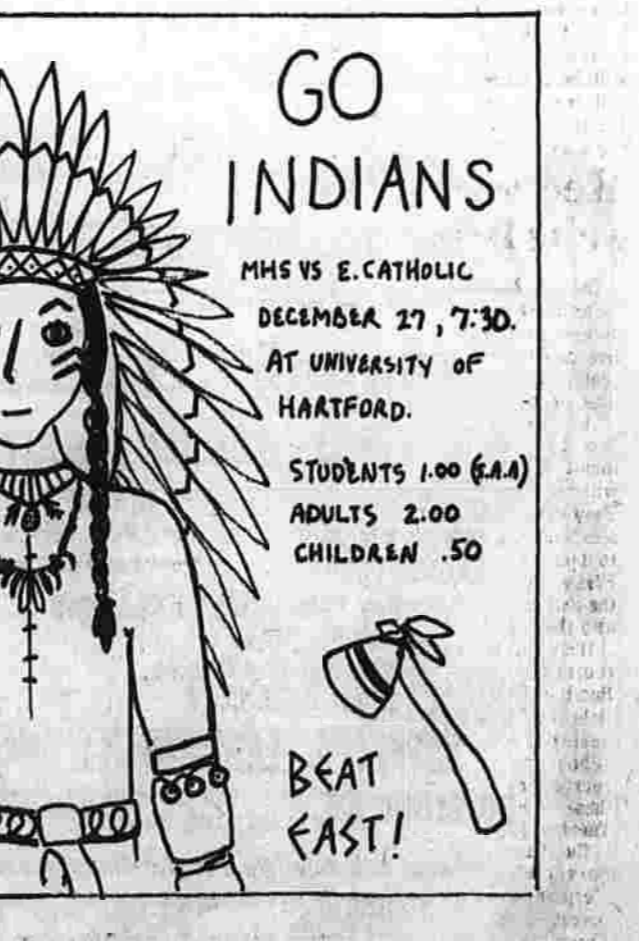 GO
INDIANS
MHS VS E. CATHOLIC
DECEMBER 27, 7:30.
AT UNIVERSITY OF
HARTFORD.
STUDENTS 1.00 (S.A.A)
ADULTS 2.00
CHILDREN .50
BEAT
EAST!